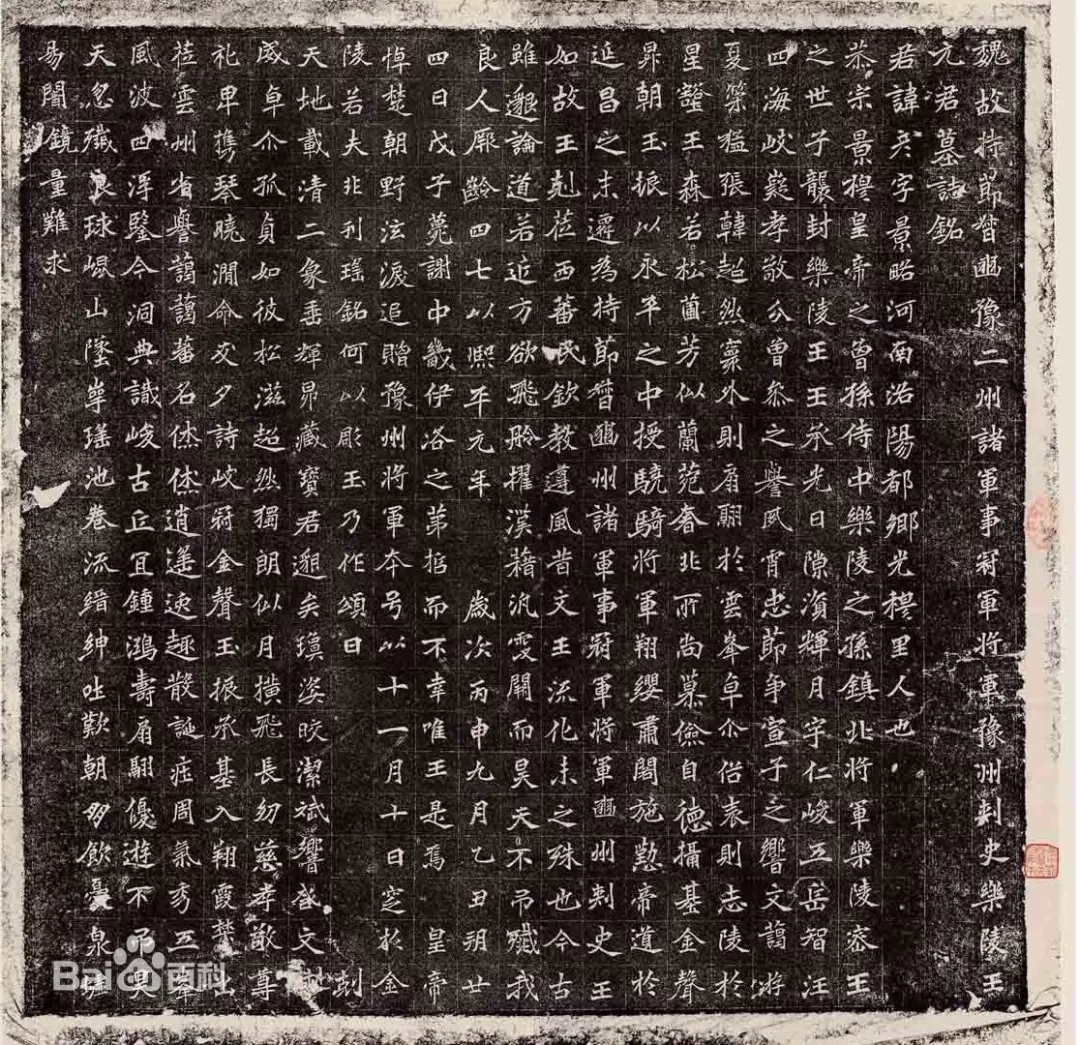 魏故持節督豳豫二州諸軍事冠軍將軍豫州刺史樂陵王
元君墓誌銘
君諱彦字景略河南洛陽都鄉光穆里人也
恭宗景穆皇帝之曾孫侍中樂陵之孫鎮北將軍樂陵密王
之世子襲封樂陵王王承光日隙資輝月宇仁峻五岳智汪
四海岐嶷孝敬分曾參之譽夙宵忠節爭宣子之響文藹游
夏策猛張韓超然稟外則扇翮於雲峯卓尒俗表則志陵於
星壑王森若松圃芳似蘭菀眷北所尚慕儉自德攝基金聲
昇朝玉振以永平之中授驍騎將軍翔纓肅閣施懃帝道於
延昌之末遷為持節督豳州諸軍事冠軍將軍豳州刺史王
如故王剋莅西蕃民欽教遵風昔文王流化未之殊也今古
雖邈論道若近方欲飛聆擢漢藉汎雯開而昊天不弔殲我
良人厥齡四七以熙平元年歲次丙申九月乙丑朔廿
四日戊子薨謝中畿伊洛之第招而不幸唯王是焉皇帝
悼楚朝野泫淚追贈豫州將軍本号以十一月十日窆於金
陵若夫非刊瑤銘何以彫玉乃作頌曰 刻
天地載清二象垂輝昴藏寶君邈矣瓊姿皎潔斌響盛文
威卓尒孤貞如彼松滋超然獨朗似月橫飛長幼慈孝敬尊
礼卑携琴曉澗命友夕詩岐冠金聲玉振承基入翔霞禁出
莅雲州省譽藹藹蕃名烋烋逍遙遠趣散誕庄周氣秀五峰
風波四浮鑒今洞典識峻古丘宜鍾鴻壽扇翮優遊不弔昊
天忽殲良球崐山墜寧瑤池卷流縉紳吐歎朝多飲憂泉
易闇鏡量難求
Bai百科